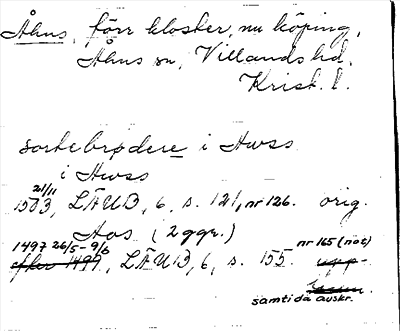 Åhus, förr kloster, nu köping,
Åhus sn, Villands hd.
Krist. l.
sortebrødere i Hwss
i Hwss
21/11
1503, LÄUB, 6, s. 121, nr 126. orig.
Aos (2 ggr.)
1497 26/5-9/6 nr 165 (not)
efter 1499, LÄUB, 6, s. 155. upp-
samtida avskr.